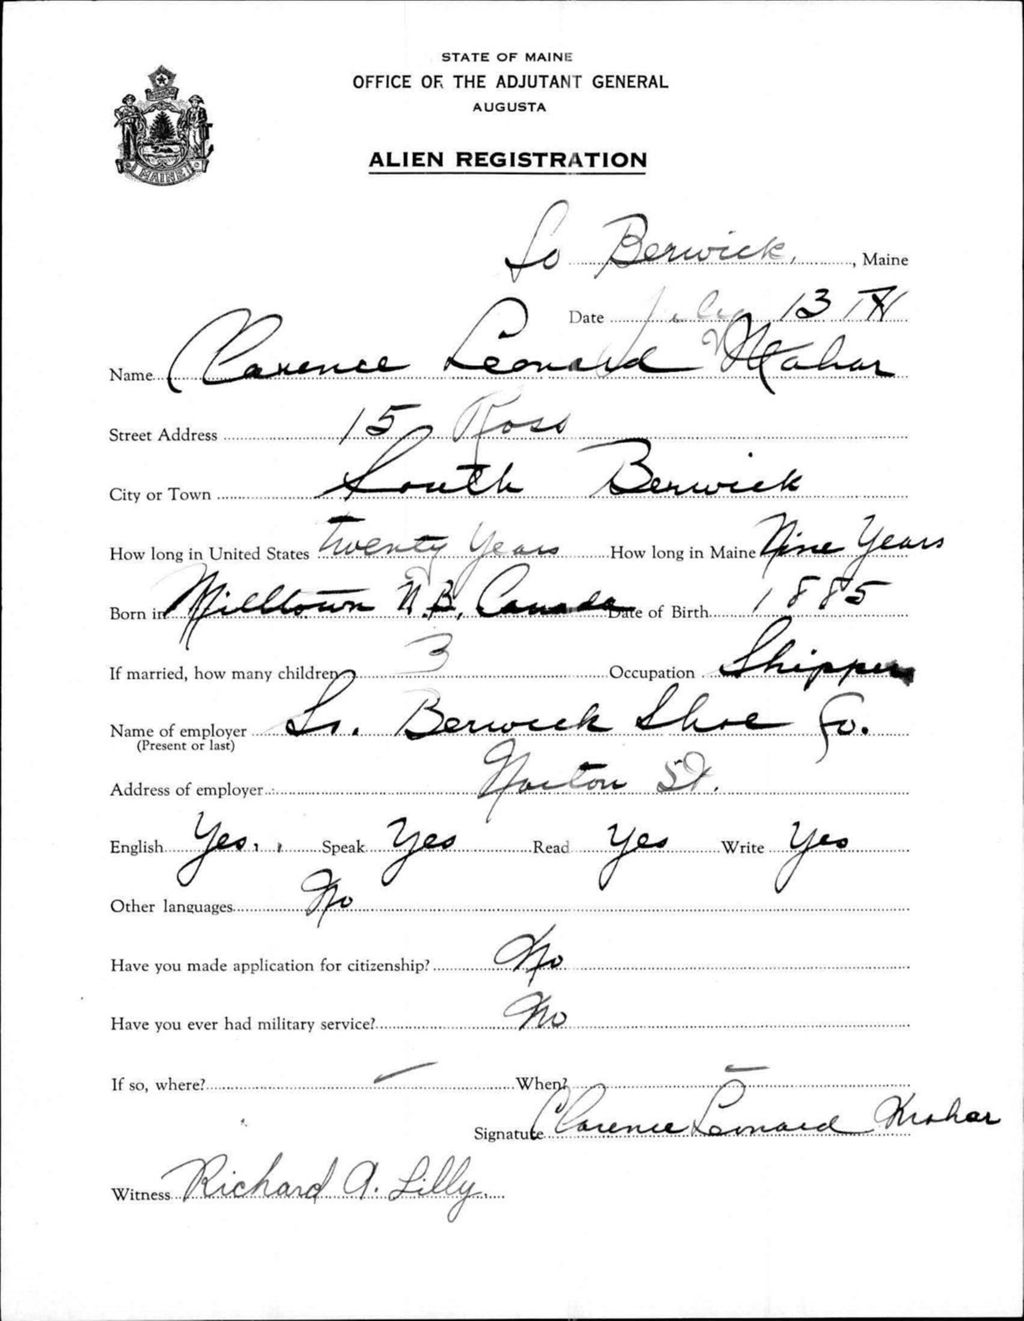 STATE OF MAINE
OFFICE OF THE ADJUTANT GENERAL
AUGUSTA
MAINE
ALIEN REGISTRATION
So Berwick, , Maine
Date July 13 TH
Name Clarence Leonard Mahar
Street Address 15 Ross
City or Town South Berwick
How long in United States Twenty Years How long in Maine Nine Years
Born in Milltown N.B, Canada Date of Birth 1885
If married, how many children 3 Occupation Shipper
Name of employer So. Berwick Shoe Co.
(Present or last)
Address of employer Norton St.
English Yes. Speak Yes Read Yes Write Yes
Other languages No
Have you made application for citizenship? No
Have you ever had military service? No
If so, where? – When? –
Signature Clarence Leonard Mahar
Witness Richard A. Lilly.